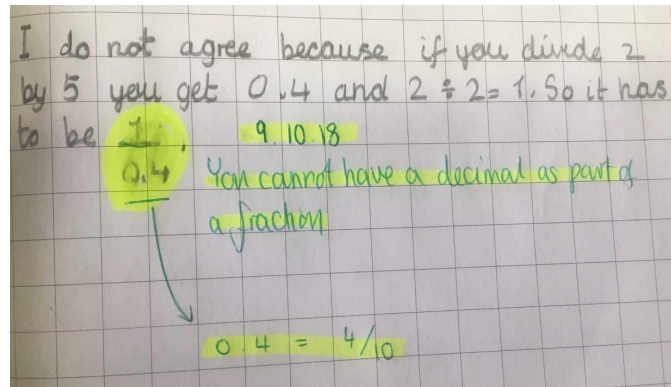 I do not agree because if you divide 2
by 5 you get 0.4 and 2 ÷ 2 = 1. So it has
to be 1/0.4.
9.10.18
You cannot have a decimal as part of
a fraction
0.4 = 4/10